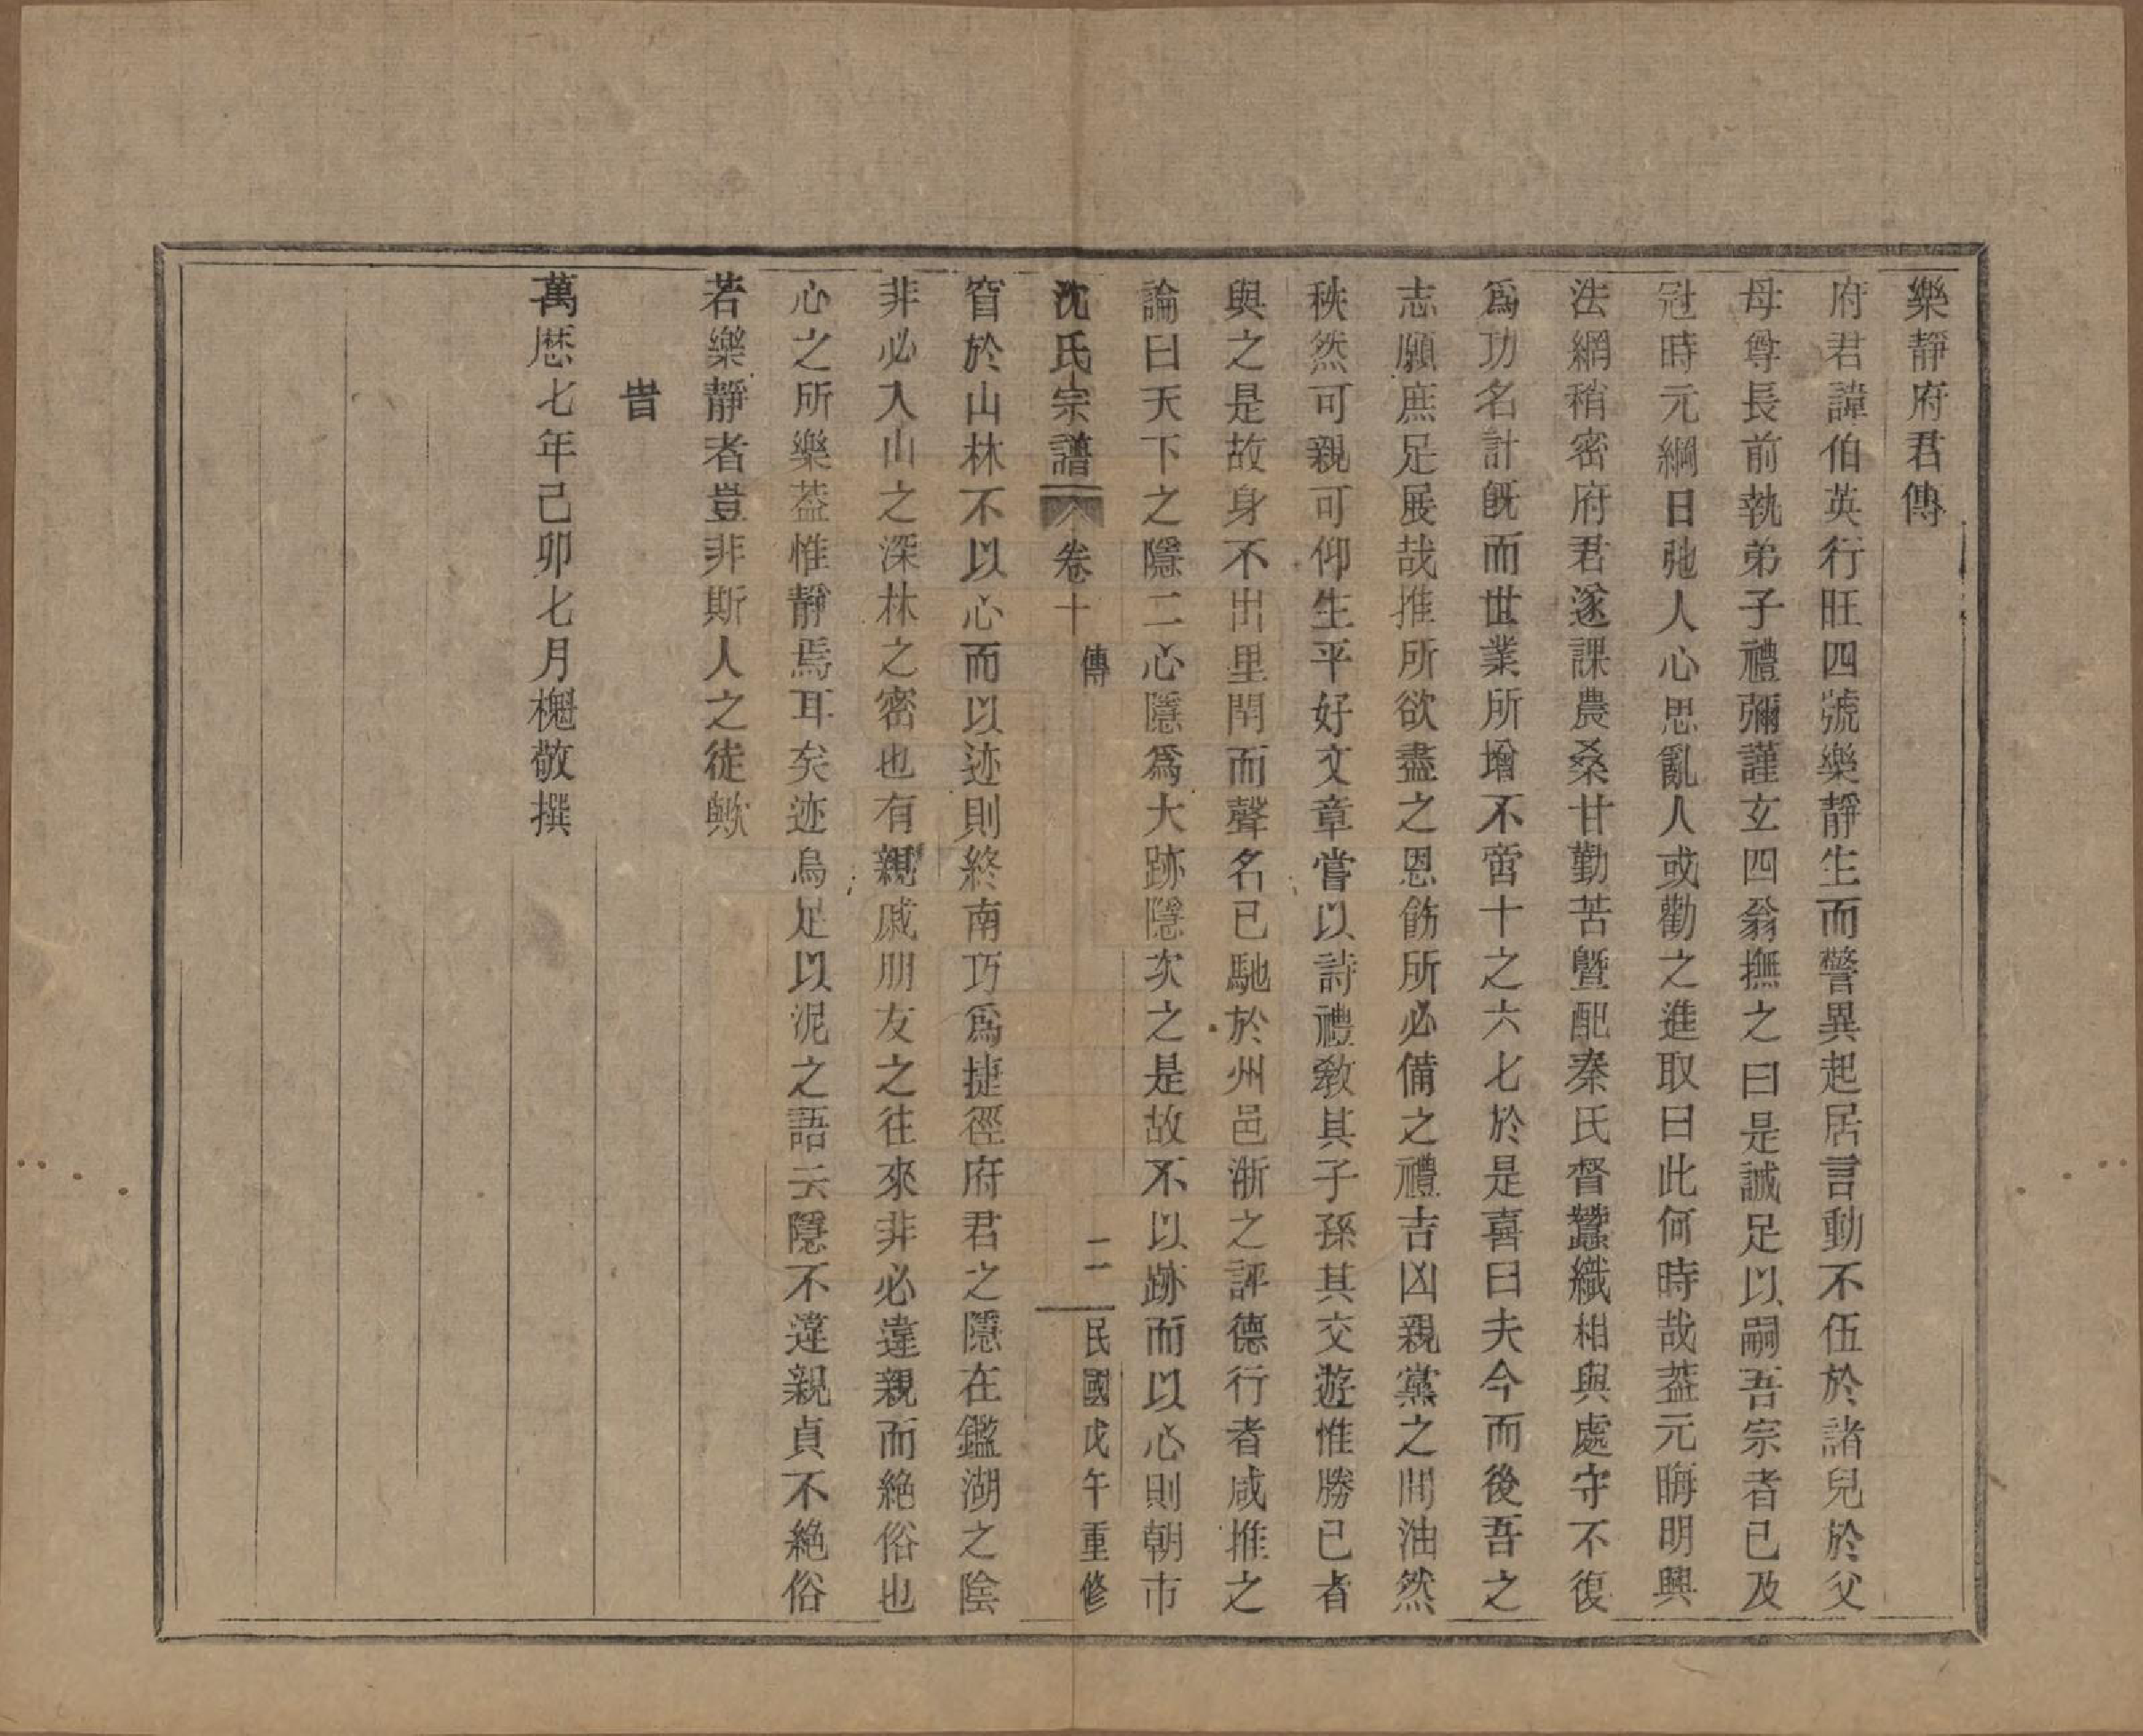 樂靜府君傳
府君諱伯英行旺四號樂靜生而警異起居言動不伍於諸兒於父
母尊長前執弟子禮彌謹玄四翁撫之曰是誠足以嗣吾宗者已及
冠時元綱日弛人心思亂人或勸之進取曰此何時哉葢元晦明興
法網稍密府君遂課農桑甘勤苦曁配秦氏督蠶織相與處守不復
爲功名計旣而世業所增不啻十之六七於是喜曰夫今而後吾之
志願庶足展哉推所欲盡之恩飭所必備之禮吉凶親黨之間油然
秩然可親可仰生平好文章嘗以詩禮敎其子孫其交遊惟勝已者
與之是故身不出里閈而聲名已馳於州邑浙之評德行者咸推之
論曰天下之隱二心隱爲大跡隱次之是故不以跡而以心則朝市
沈氏宗譜 卷十 傳 二 民國戊午重修
窅於山林不以心而以迹則終南巧爲捷徑府君之隱在鑑湖之陰
非必入山之深林之密也有親戚朋友之往來非必違親而絶俗也
心之所樂葢惟靜焉耳矣迹烏足以泥之語云隱不違親貞不絶俗
若樂靜者豈非斯人之徒歟
旹
萬厯七年己卯七月槐敬撰